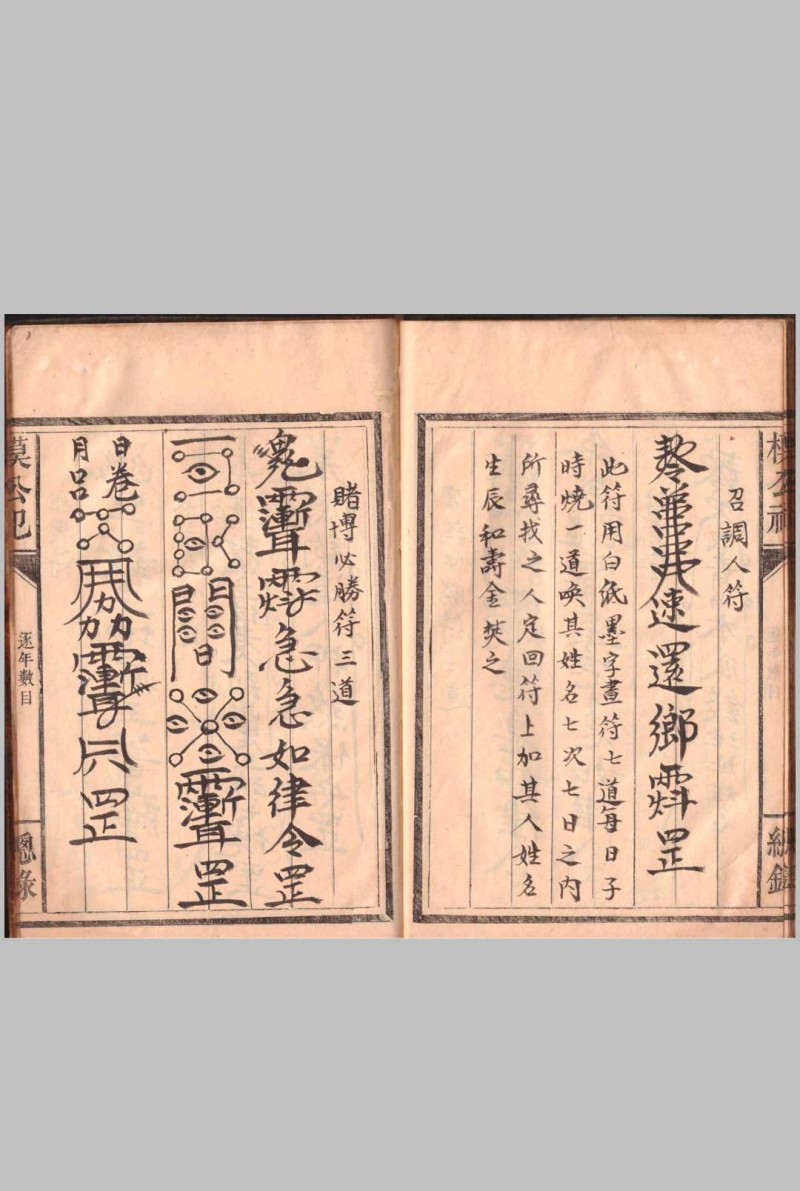 召調人符
速還鄉 罡
此符用白紙墨字畫符七道每日子
時燒一道喚其姓名七次七日之内
所尋找之人定回符上加其人姓名
生辰和壽金焚之
賭博必勝符三道
急急如律令罡
日
罡
日
月
罡
逐年數目
總錄